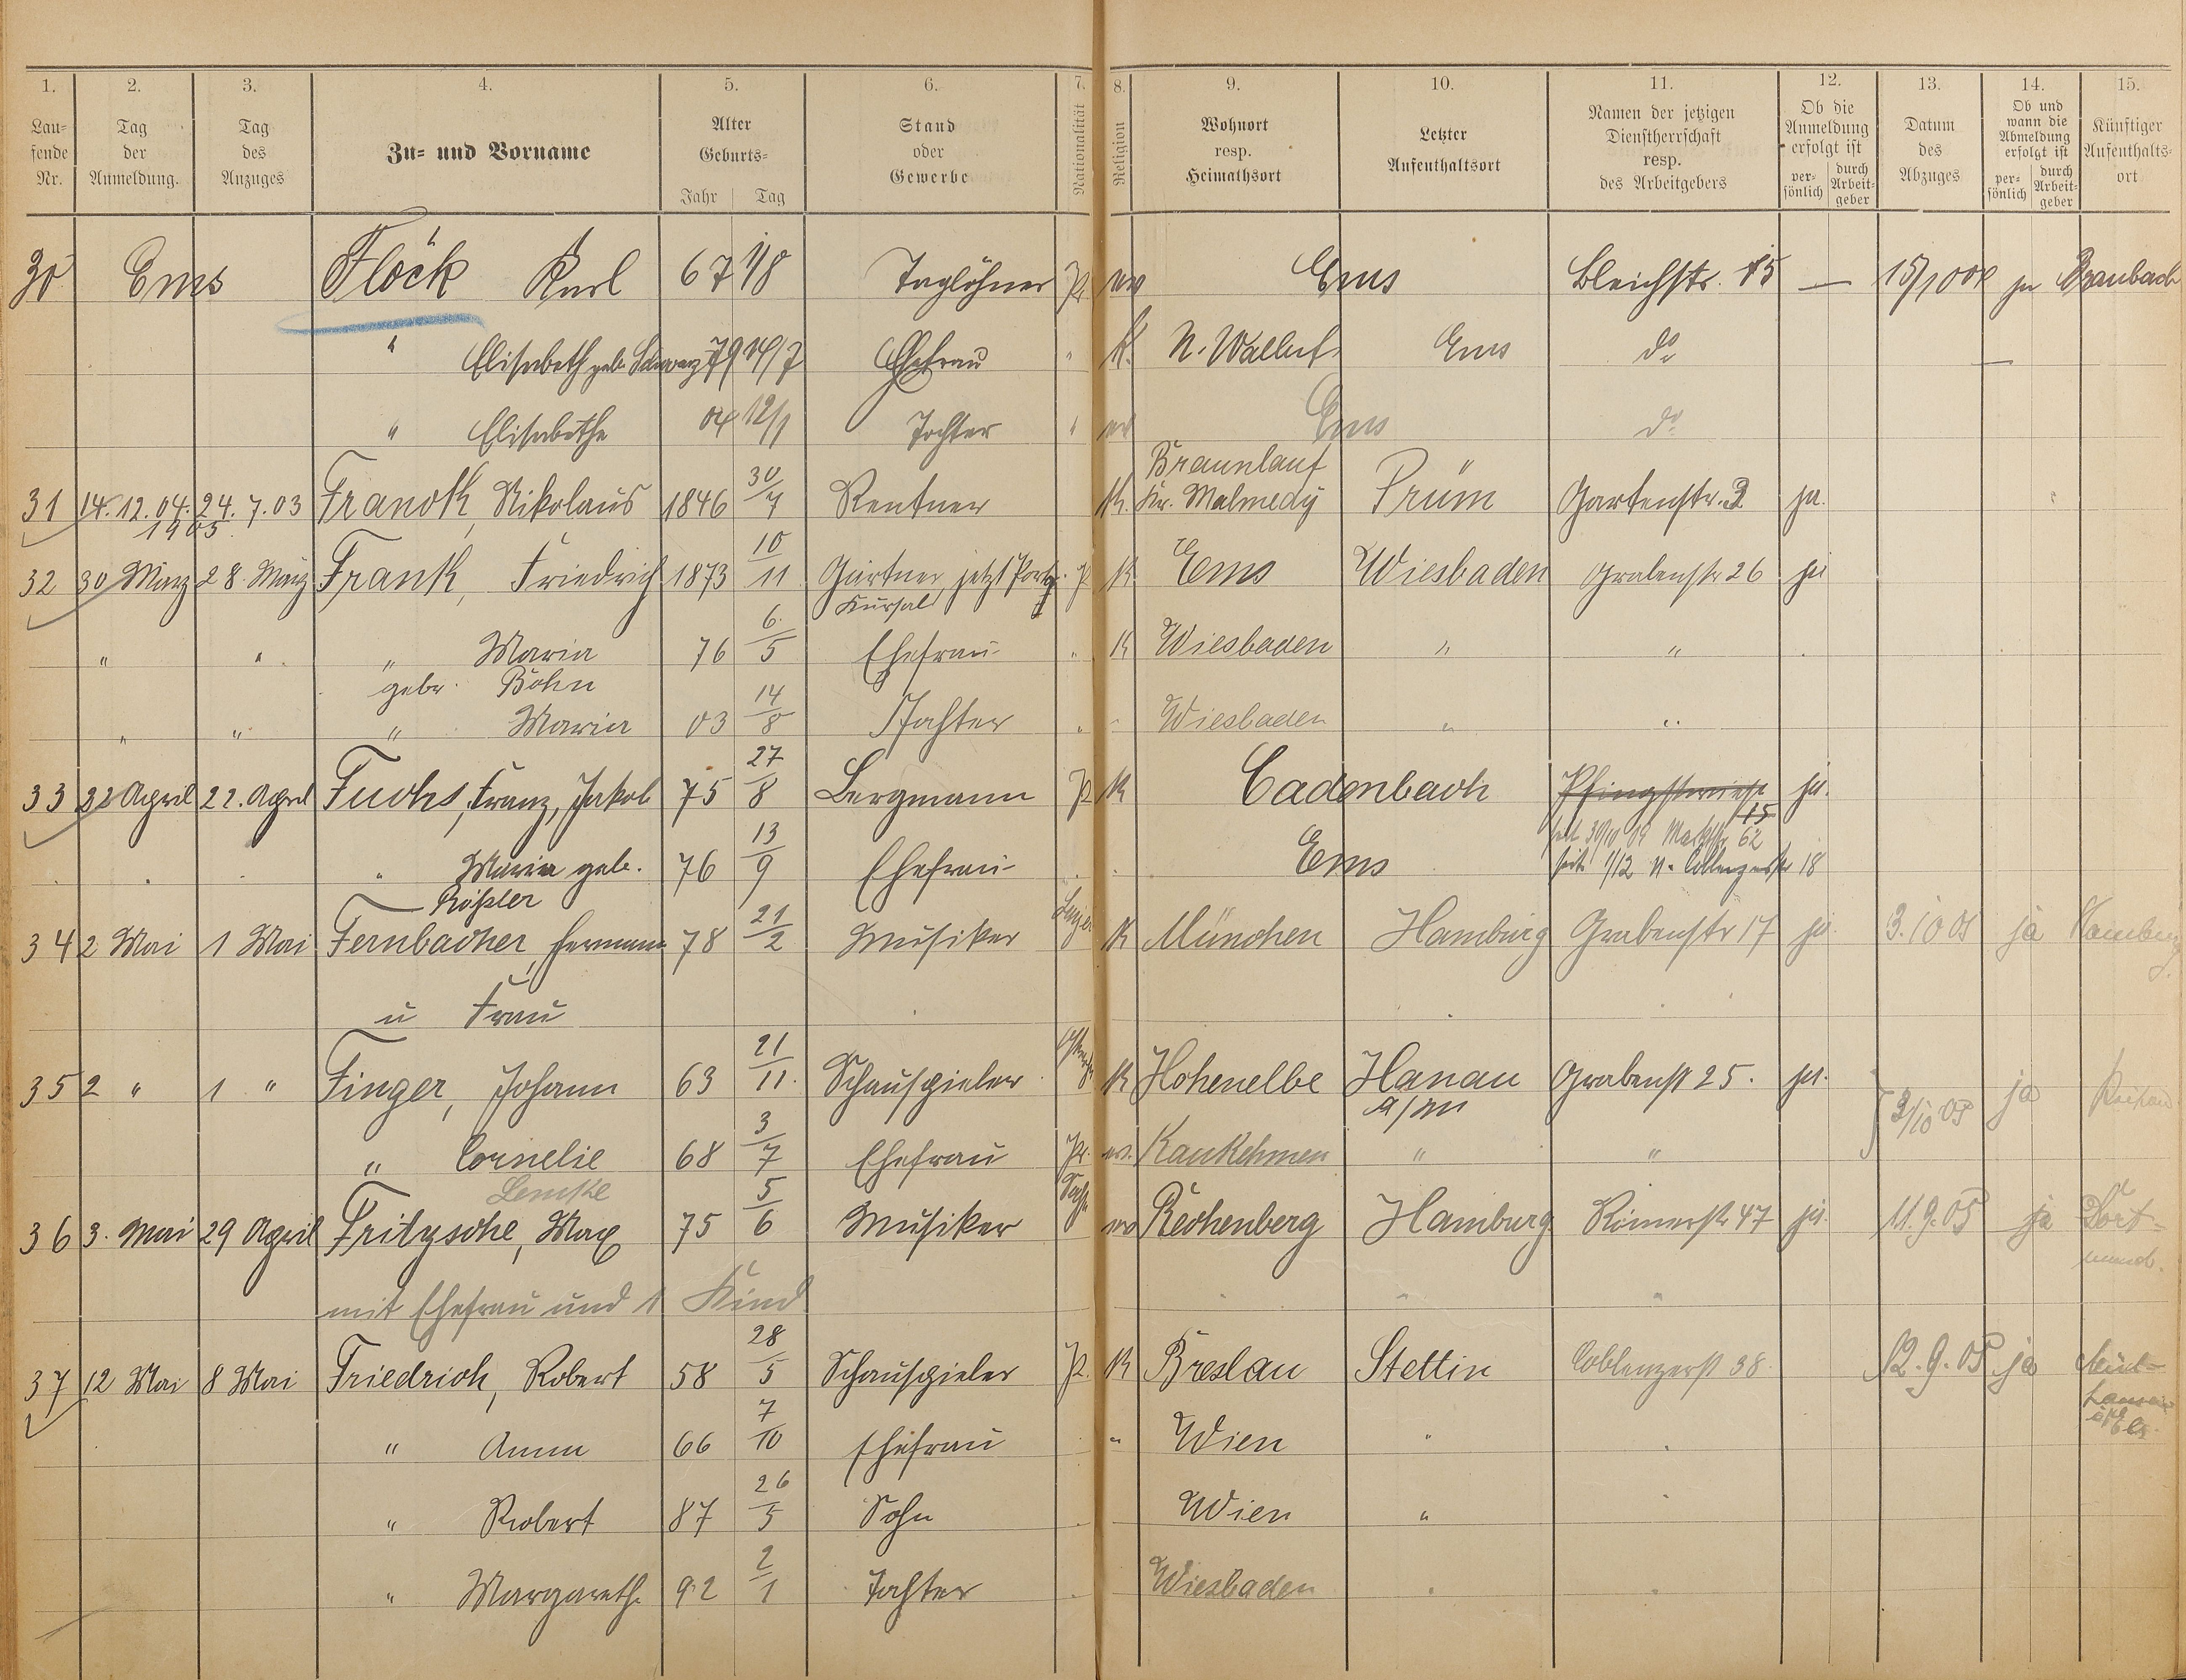 1. 2. 3. 4. 5. 6. 7. 8. 9. 10. 11. 12. 13. 14. 15.
Lau-
fende
Nr.
Tag
der
Anmeldung.
Tag
des
Anzuges
Zu- und Vorname
Alter
Geburts-
Jahr Tag
Stand
oder
Gewerbe
Nationalität
Religion
Wohnort
resp.
Heimathsort
Letzter
Aufenthaltsort
Namen der jetzigen
Dienstherrschaft
resp.
des Arbeitgebers
Ob die
Anmeldung
erfolgt ist
per-
sönlich
durch
Arbeit-
geber
Datum
des
Abzuges
Ob und
wann die
Abmeldung
erfolgt ist
per-
sönlich
durch
Arbeit-
geber
Künftiger
Aufenthalts-
ort
30 Ems Flöck Karl 67 1/8 Taglöhner Pr. ev Ems Bleichstr. 15 — ja Braubach
" Elisabeth geb. Schwarz 79 Ehefrau " K. N. Walluf Ems do —
" Elisabethe 04 12/1 Tochter " ev Ems do
31 14.12.04. 24.7.03 Franck, Nikolaus 1846 30/7 Rentner K. Braunlauf Kr. Malmedy Prüm Gartenstr. 2 ja.
1905.
32 30 März 28. März Frank, Friedrich 1873 10/11 Gärtner, jetzt P K Ems Wiesbaden Grabenstr 26 ja
Kursaal
" " " Maria 76 6/5 Ehefrau " K Wiesbaden " "
gebr. Böhn
" " " Maria 03 14/8 Tochter " " Wiesbaden " "
33 22 April 22. April Fuchs, Franz, Jakob 75 27/8 Bergmann P K Cadenbach Pfingstwiese 15 ja.
" Maria geb. 76 13/9 Ehefrau Ems
seit 1/12 n. Coblenzerstr 18
Rößler
34 2 Mai 1 Mai Fernbacher, Hermann 78 21/2 Musiker K München Hamburg Grabenstr 17 ja. 3.10 05 ja Hamburg
u Frau
35 2 " 1 " Finger, Johann 63 21/11. Schauspieler K Hohenelbe Hanau a/M Grabenst 25. ja. 3/10 05 ja
" Cornelie 68 3/7 Ehefrau Pr. ev. Kaukehmen " "
Lemke
36 3. Mai 29 April Fritzsche, Max 75 5/6 Musiker ev Rechenberg Hamburg Römerstr 47 ja. 11.9.05 ja Dort-
mund.
mit Ehefrau und 1 Kind " " "
37 12 Mai 8 Mai Friedrich, Robert 58 28/5 Schauspieler P. K Breslau Stettin Coblenzerst 38. 12.9.05 ja Mül-
hausen
" Anna 66 7/10 Ehefrau " Wien "
" Robert 87 26/5 Sohn Wien "
" Margareth. 92 2/1 Tochter Wiesbaden